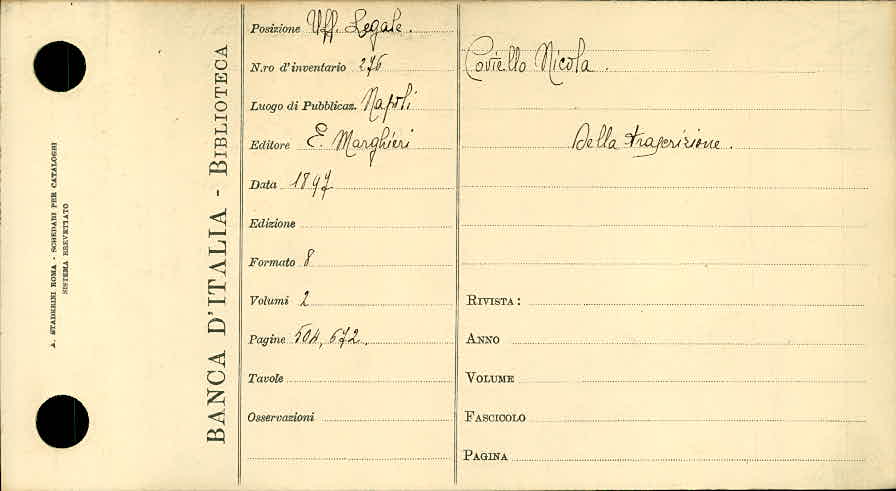 A. STADERINI ROMA - SCHEDARI PER CATALOGHI
SISTEMA BREVETTATO
BANCA D'ITALIA - BIBLIOTECA
Posizione Uff. Legale.
N.ro d'inventario 276
Luogo di Pubblicaz. Napoli
Editore E. Marghieri
Data 1897
Edizione
Formato 8
Volumi 2
Pagine 504, 672.
Tavole
Osservazioni
Coviello Nicola.
Della trascrizione.
RIVISTA:
ANNO
VOLUME
FASCICOLO
PAGINA